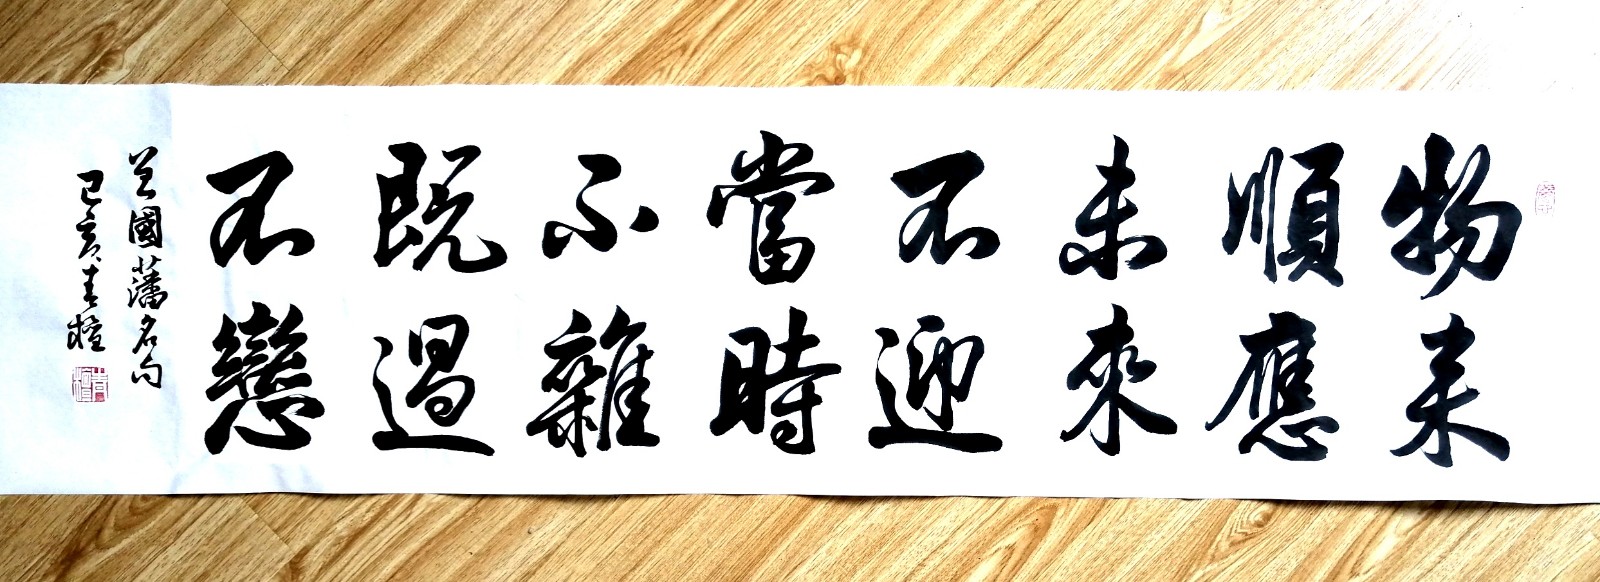 物来
順應
未來
不迎
當時
不雜
既過
不戀
曾國藩名句
己亥青檀